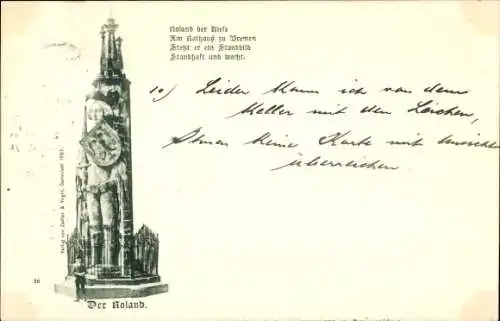 Roland der Riese
Am Rathaus zu Bremen
Steht er ein Standbild
Standhaft und wacht.
10) Leider kann ich von dem
Keller mit den Leichen,
Ihnen keine Karte mit Ansicht
überreichen.
Verlag von Zedler & Vogel, Darmstadt 1897.
36
Der Roland.